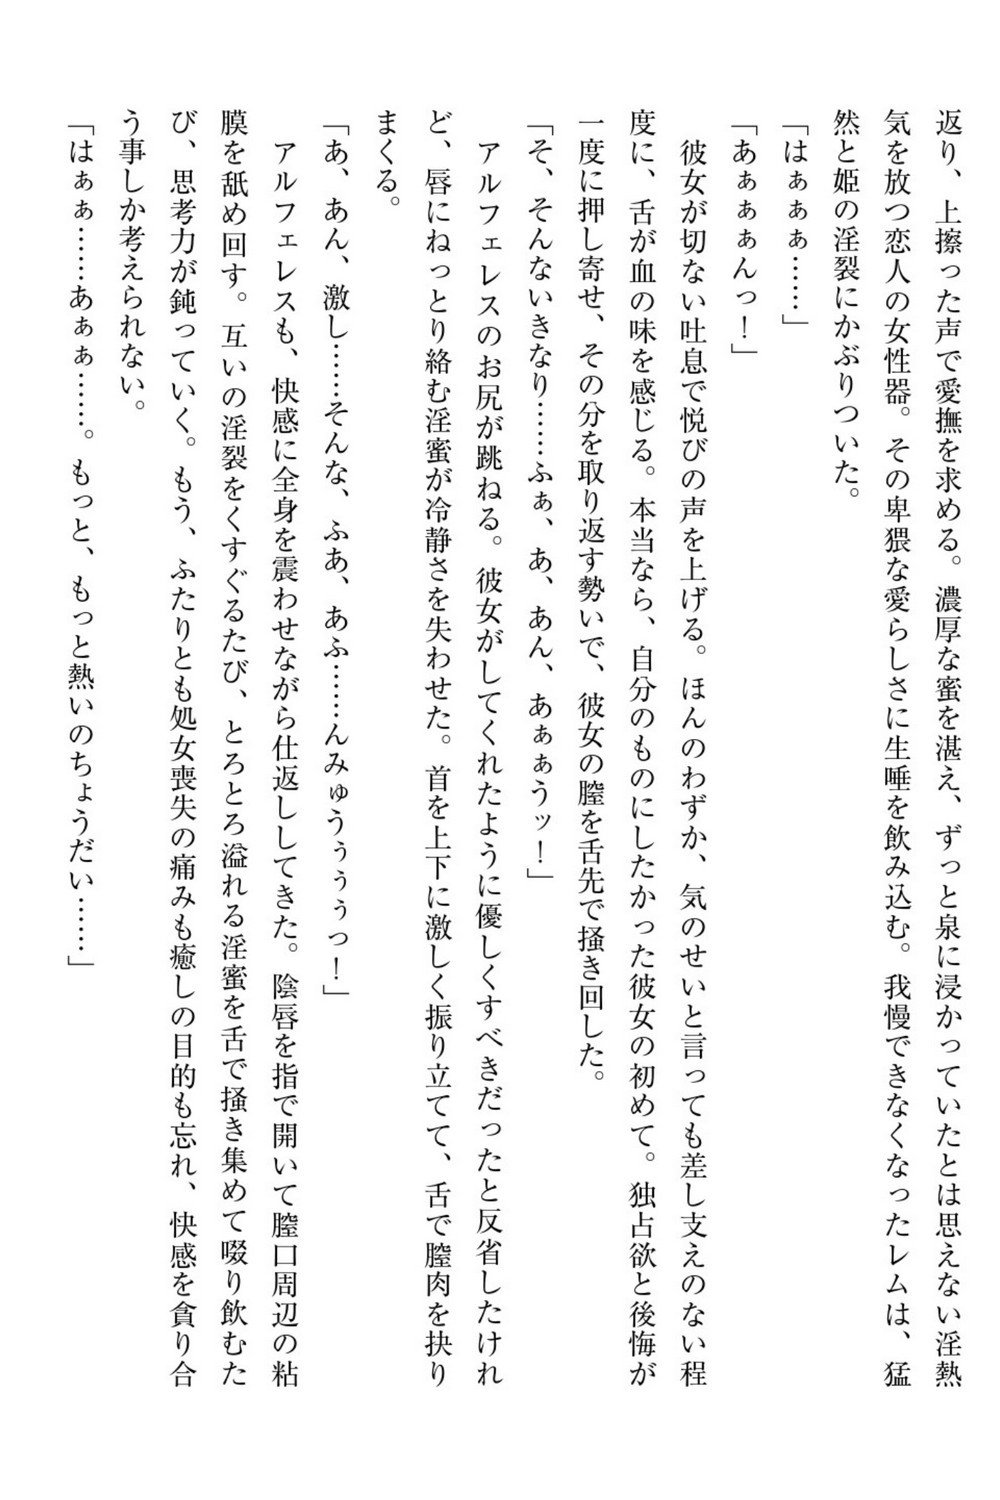 返り、上擦った声で愛撫を求める。濃厚な蜜を湛え、ずっと泉に浸かっていたとは思えない淫熱
気を放つ恋人の女性器。その卑猥な愛らしさに生唾を飲み込む。我慢できなくなったレムは、猛
然と姫の淫裂にかぶりついた。
「はぁぁぁ……」
「あぁぁぁんっ！」
彼女が切ない吐息で悦びの声を上げる。ほんのわずか、気のせいと言っても差し支えのない程
度に、舌が血の味を感じる。本当なら、自分のものにしたかった彼女の初めて。独占欲と後悔が
一度に押し寄せ、その分を取り返す勢いで、彼女の膣を舌先で掻き回した。
「そ、そんないきなり……ふぁ、あ、あん、あぁぁうッ！」
アルフェレスのお尻が跳ねる。彼女がしてくれたように優しくすべきだったと反省したけれ
ど、唇にねっとり絡む淫蜜が冷静さを失わせた。首を上下に激しく振り立てて、舌で膣肉を抉り
まくる。
「あ、あん、激し……そんな、ふあ、あふ……んみゅうぅぅぅっ！」
アルフェレスも、快感に全身を震わせながら仕返ししてきた。陰唇を指で開いて膣口周辺の粘
膜を舐め回す。互いの淫裂をくすぐるたび、とろとろ溢れる淫蜜を舌で掻き集めて啜り飲むた
び、思考力が鈍っていく。もう、ふたりとも処女喪失の痛みも癒しの目的も忘れ、快感を貪り合
う事しか考えられない。
「はぁぁ……あぁぁ……。もっと、もっと熱いのちょうだい……」